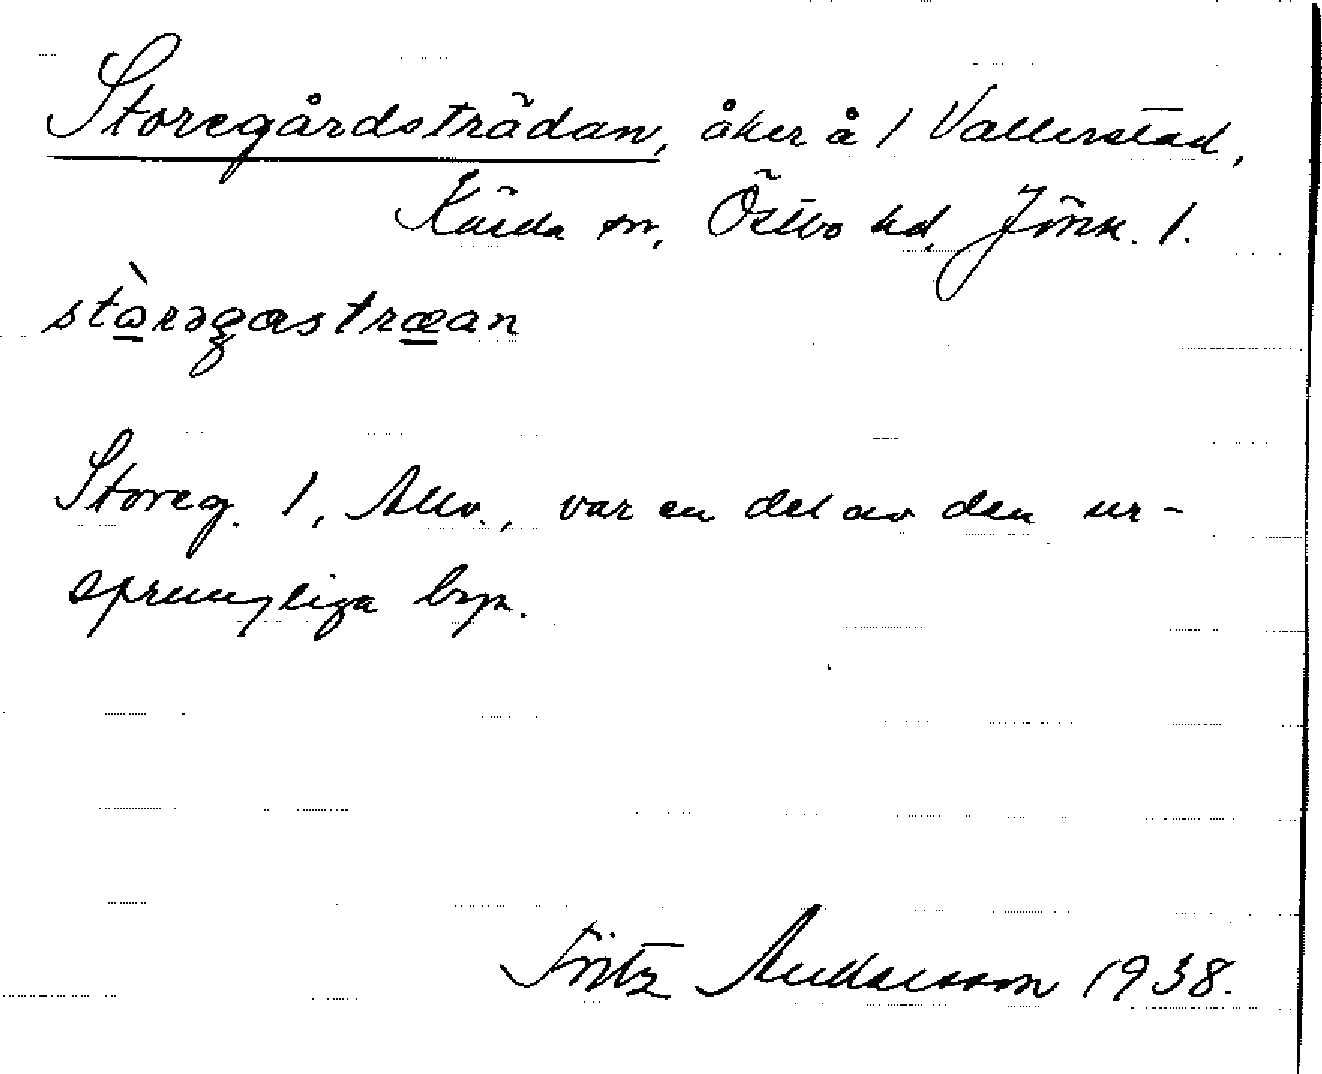 Storegårdsträdan, åker å 1 Vallerstad,
Kärda sn, Östbo hd, Jönk. l.
stòrəgastræan
Storeg. 1, Allv., var en del av den ur-
sprungliga byn.
Fritz Andersson 1938.